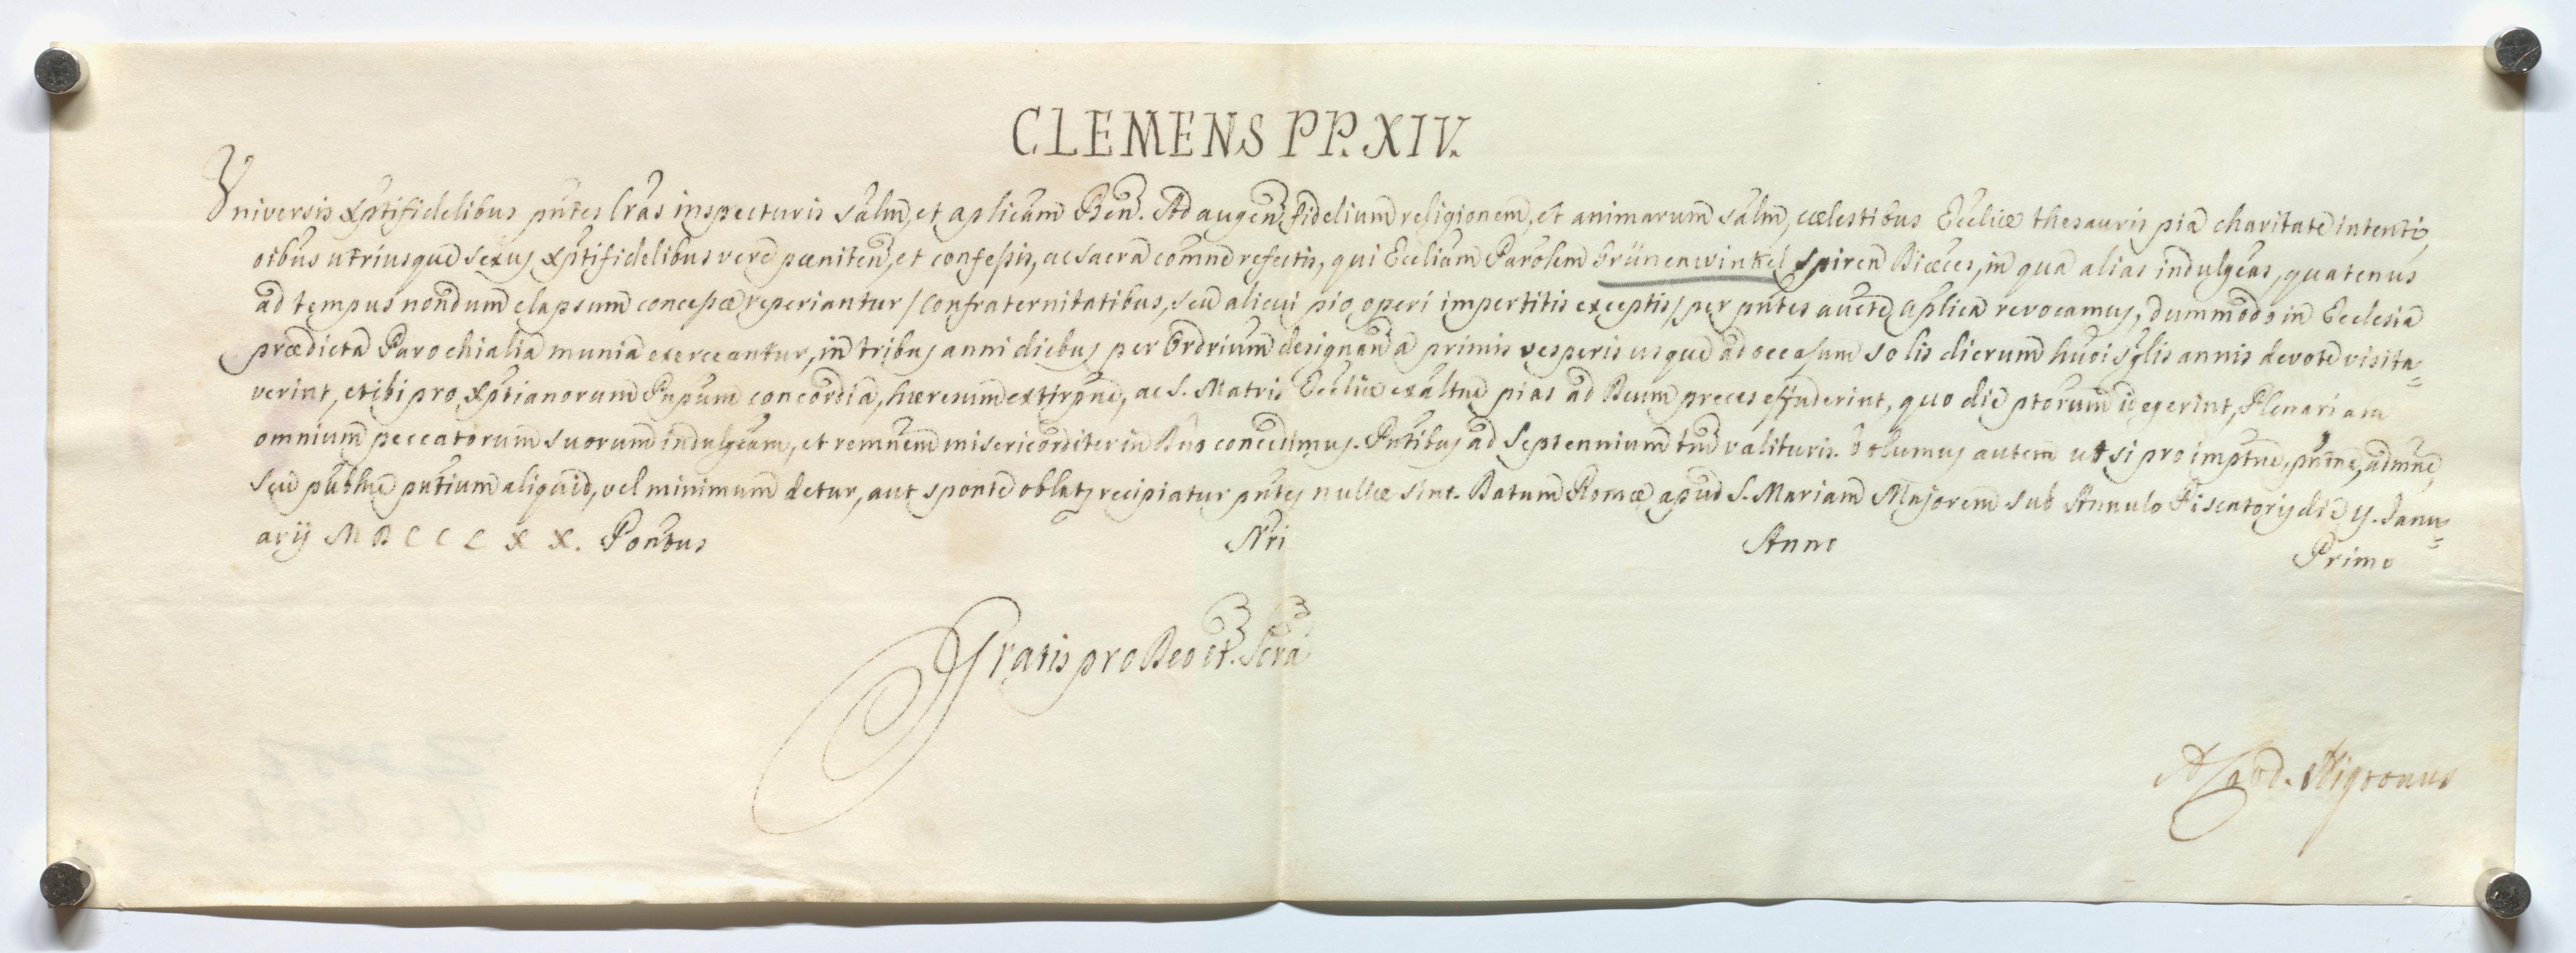 CLEMENS PP. XIV.
Universis Xptifidelibus pntes lras inspecturis Salm, et aplicam Ben. Ad augen. fidelium religionem, et animarum salm, cœlestibus Eccliæ thesauris pia charitate intenti,
oibus utriusque sexus Xptifidelibus vere pœniten, et confessis, ac sacra comne refectis, qui Eccliam Parolem Grünenwinkel Spiren Diœces, in qua alias indulgeas, quatenus
ad tempus nondum elapsum concessæ reperiantur / Confraternitatibus, seu alicui pio operi impertitis exceptis / per pntes aucte Aplica revocamus, dummodo in Ecclesia
prædicta Parochialia munia exerceantur, in tribus anni diebus per Ordrium designan a primis vesperis usque ad occasum solis dierum huoi sglis annis devote visita=
verint, et ibi pro Xptianorum Pnpum concordia, hæresum extirpne, ac S. Matris Eccliæ exaltne pias ad Deum preces effuderint, quo die ptorum id egerint, Plenariam
omnium peccatorum suorum indulgeam, et remnem misericorditer in Dno concedimus. Pntibus ad Septennium tm valituris. Volumus autem ut si pro imptne, pntne, admne,
seu publne pntium aliquid, vel minimum detur, aut sponte oblat, recipiatur pntes nullæ sint. Datum Romæ apud S. Mariam Majorem sub Annulo Piscatoris die Janu=
arij MDCCLXX. Pontus Nri Anno Primo
Gratis pro Deo et Scra
A. Card. Nigronus